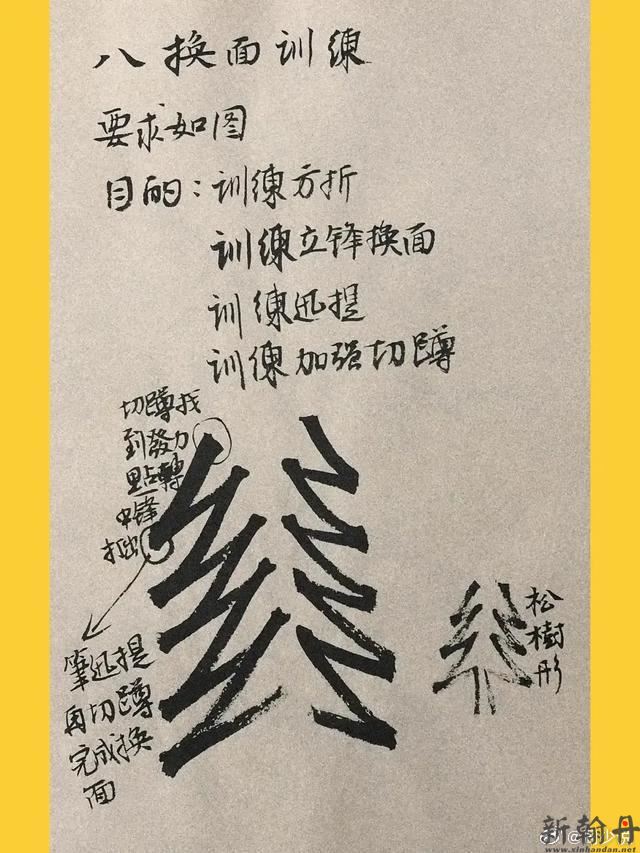 八换面训练
要求如图
目的：训练方折
训练立锋换面
训练迅提
训练加强切蹲
切蹲找
到發力
點轉
中锋
筆迅提
再切蹲
完成换
面
松樹形
新翰丹
www.xinhandan.net